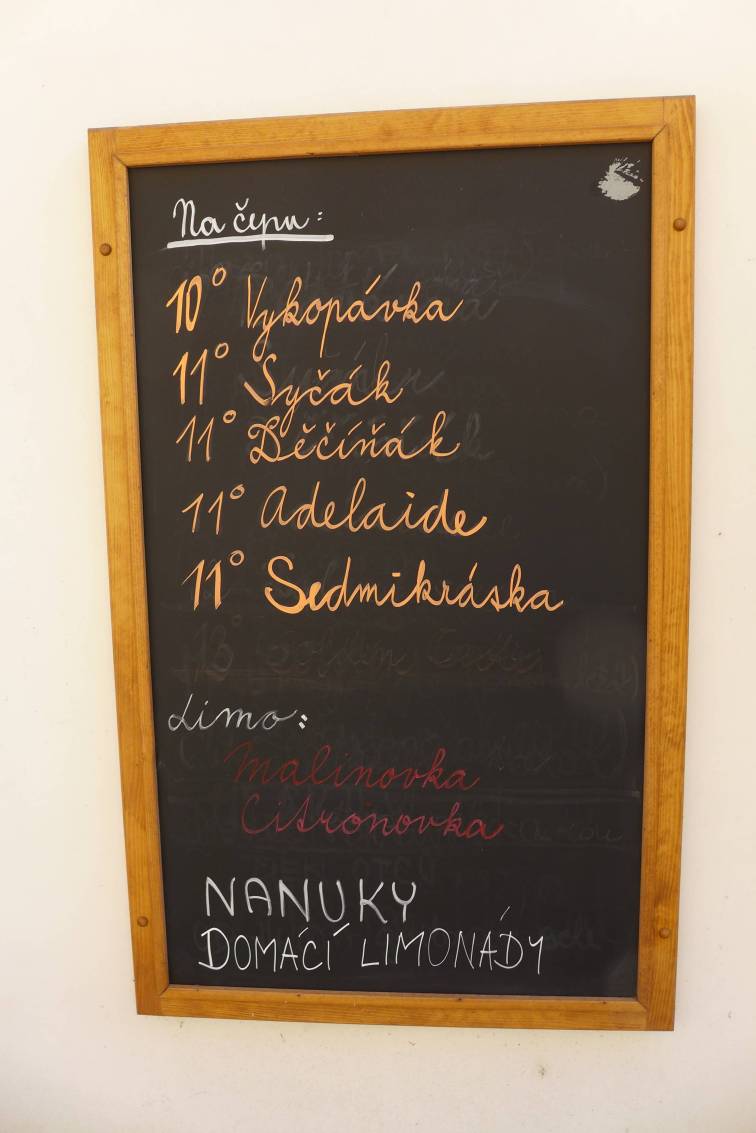 Na čepu:
10° Vykopávka
11° Syčák
11° Děčíňák
11° Adelaide
11° Sedmikráska
Limo:
Malinovka
Citronovka
NANUKY
DOMÁCÍ LIMONÁDY